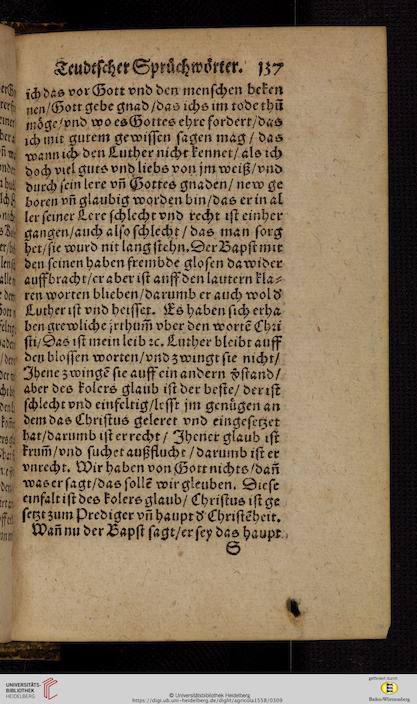 Teudtscher Sprüchwörter. 137
ich das vor Gott vnd den menschen beken
nen/Gott gebe gnad/das ichs im tode thů
möge/vnd wo es Gottes ehre fordert/das
ich mit gutem gewissen sagen mag/das
wann ich den Luther nicht kennet/als ich
doch viel guts vnd liebs von jm weiß/vnd
durch sein lere vñ Gottes gnaden/new ge
boren vñ glaubig worden bin/das er in al
ler seiner Lere schlecht vnd recht ist einher
gangen/auch also schlecht/das man sorg
het/sie wurd nit lang stehn. Der Bapst mit
den seinen haben frembde glosen dawider
auffbracht/er aber ist auff den lautern kla-
ren worten blieben/darumb er auch wol d̕
Luther ist vnd heisset. Es haben sich erha
ben grewliche jrthum̃ vber den wortẽ Chri
sti/Das ist mein leib ꝛc. Luther bleibt auff
den blossen worten/vnd zwingt sie nicht/
Jhene zwingẽ sie auff ein andern v̄stand/
aber des kolers glaub ist der beste/der ist
schlecht vnd einfeltig/lesst jm genügen an
dem das Christus geleret vnd eingesetzet
hat/darumb ist er recht/ Jhener glaub ist
krum̃/vnd suchet außflucht/darumb ist er
vnrecht. Wir haben von Gott nichts/dañ
was er sagt/das sollẽ wir gleuben. Diese
einfalt ist des kolers glaub/Christus ist ge
setzt zum Prediger vñ haupt d̕ Christẽheit.
Wañ nu der Bapst sagt/er sey das haupt
S
UNIVERSITÄTS-
BIBLIOTHEK
HEIDELBERG
© Universitätsbibliothek Heidelberg
https://digi.ub.uni-heidelberg.de/diglit/agricola1558/0309
gefördert durch
Baden-Württemberg